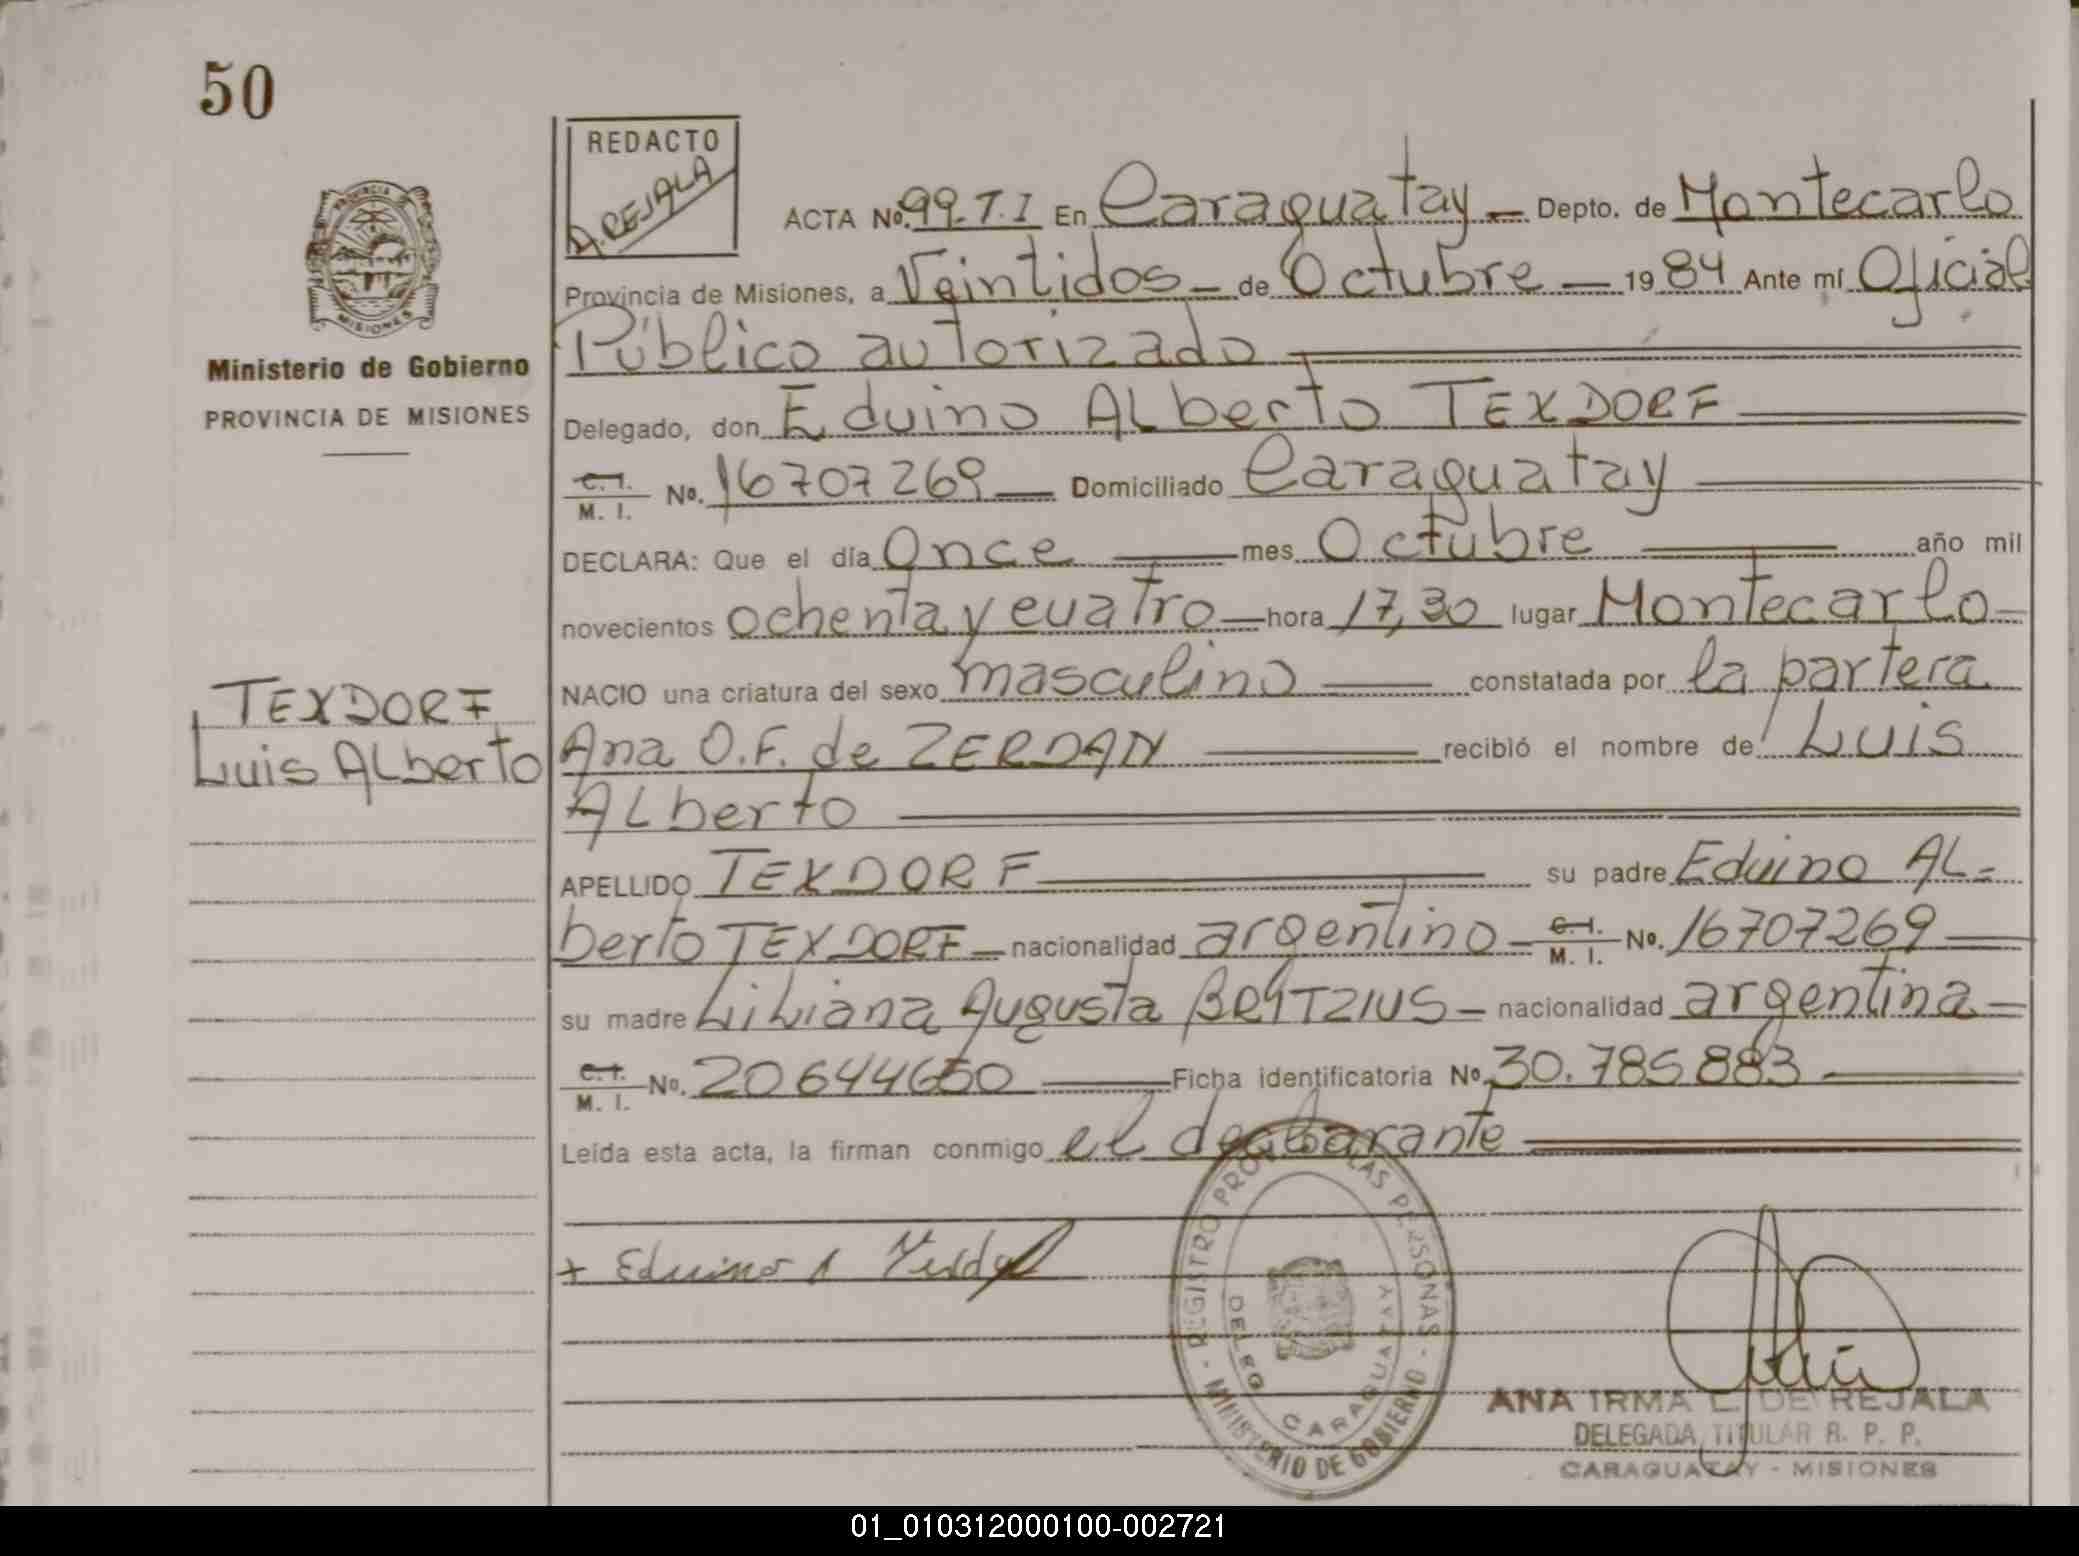 50
REDACTO
A. REJALA
ACTA Nº. 99. T. I En Caraguatay Depto. de Montecarlo
PROVINCIA
MISIONES
Provincia de Misiones, a Veintidos de Octubre 1984 Ante mí Oficial
Público autorizado
Ministerio de Gobierno
PROVINCIA DE MISIONES
Delegado, don Eduino ALberto TEXDORF
C. I.
M. I. Nº. 16707269 Domiciliado Caraguatay
DECLARA: Que el día Once mes Octubre año mil
novecientos ochenta y cuatro hora 17,30 lugar Montecarlo
NACIO una criatura del sexo masculino constatada por la partera
TEXDORF
Luis ALberto
Ana O.F. de ZERDAN recibió el nombre de Luis
ALberto
APELLIDO TEXDORF su padre Eduino AL-
berto TEXDORF nacionalidad argentino C. I. M. I. Nº. 16707269
su madre LiLiana Augusta BRITZIUS nacionalidad argentina
C. I.
M. I. Nº. 20644650 Ficha identificatoria Nº 30.785883
Leída esta acta, la firman conmigo el declarante
+ Eduino A
REGISTRO LAS PERSONAS - MINISTERIO DE GOBIERNO -
DELEG CARAGUATAY
ANA IRMA L. DE REJALA
DELEGADA TITULAR R. P. P.
CARAGUATAY - MISIONES
01_010312000100-002721